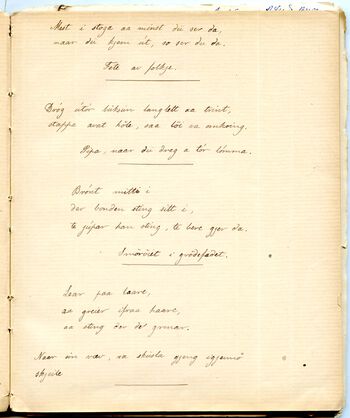 Mest i stoga aa minst du ser da,
naar du kjem ut, so ser du da.
Fote av folkje.
Drög útór búksun langlett aa trint,
stappa avat hole, saa töi va omkring.
Pipa, naar du dreg a tór lömma.
Brönt mitti i
dar bonden sting sitt i,
te júpar han sting, te bere gjer da.
Smöröiet i grödefadet.
Lear paa laare,
aa greier ifraa haare,
aa sting der de grenar.
Naar ein væv, sa skúla gjeng igjenno
skjeile